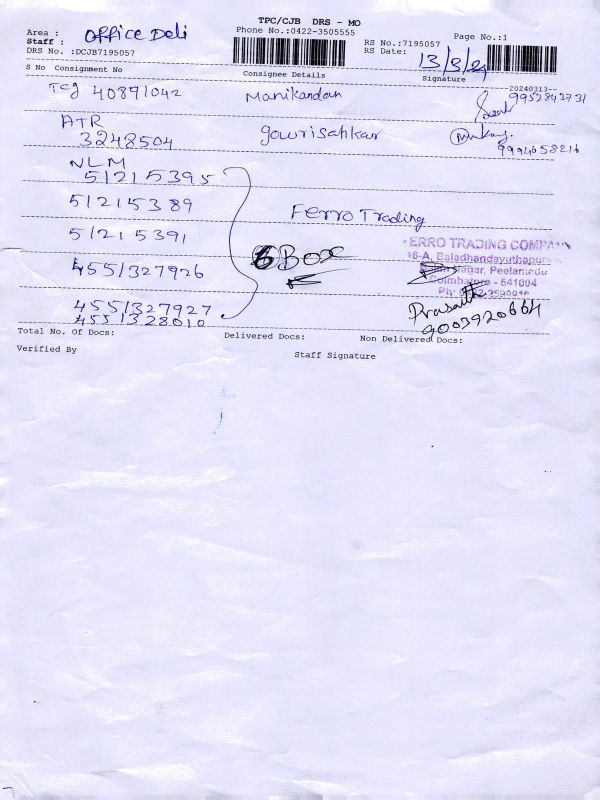 TPC/CJB DRS - MO
Area : office Deli
Phone No.:0422-3505555
Page No.:1
Staff :
RS No.:7195057
DRS No. :DCJB7195057
RS Date: 13/3/24
S No Consignment No
Consignee Details
Signature
--20240313--
Tcj 40891042
Manikandan
9952843731
ATR
3248504
gourisahkar
9994058216
NLM
51215395
51215389
Ferro Trading
51215391
6 Box
ERRO TRADING COMPA
16-A, Baladhandayuthapura
Nagar, Peelamedu
Coimbatore - 641004
4551327926
4551327927
Prasath
9003920664
4551328010
Total No. Of Docs:
Delivered Docs:
Non Delivered Docs:
Verified By
Staff Signature